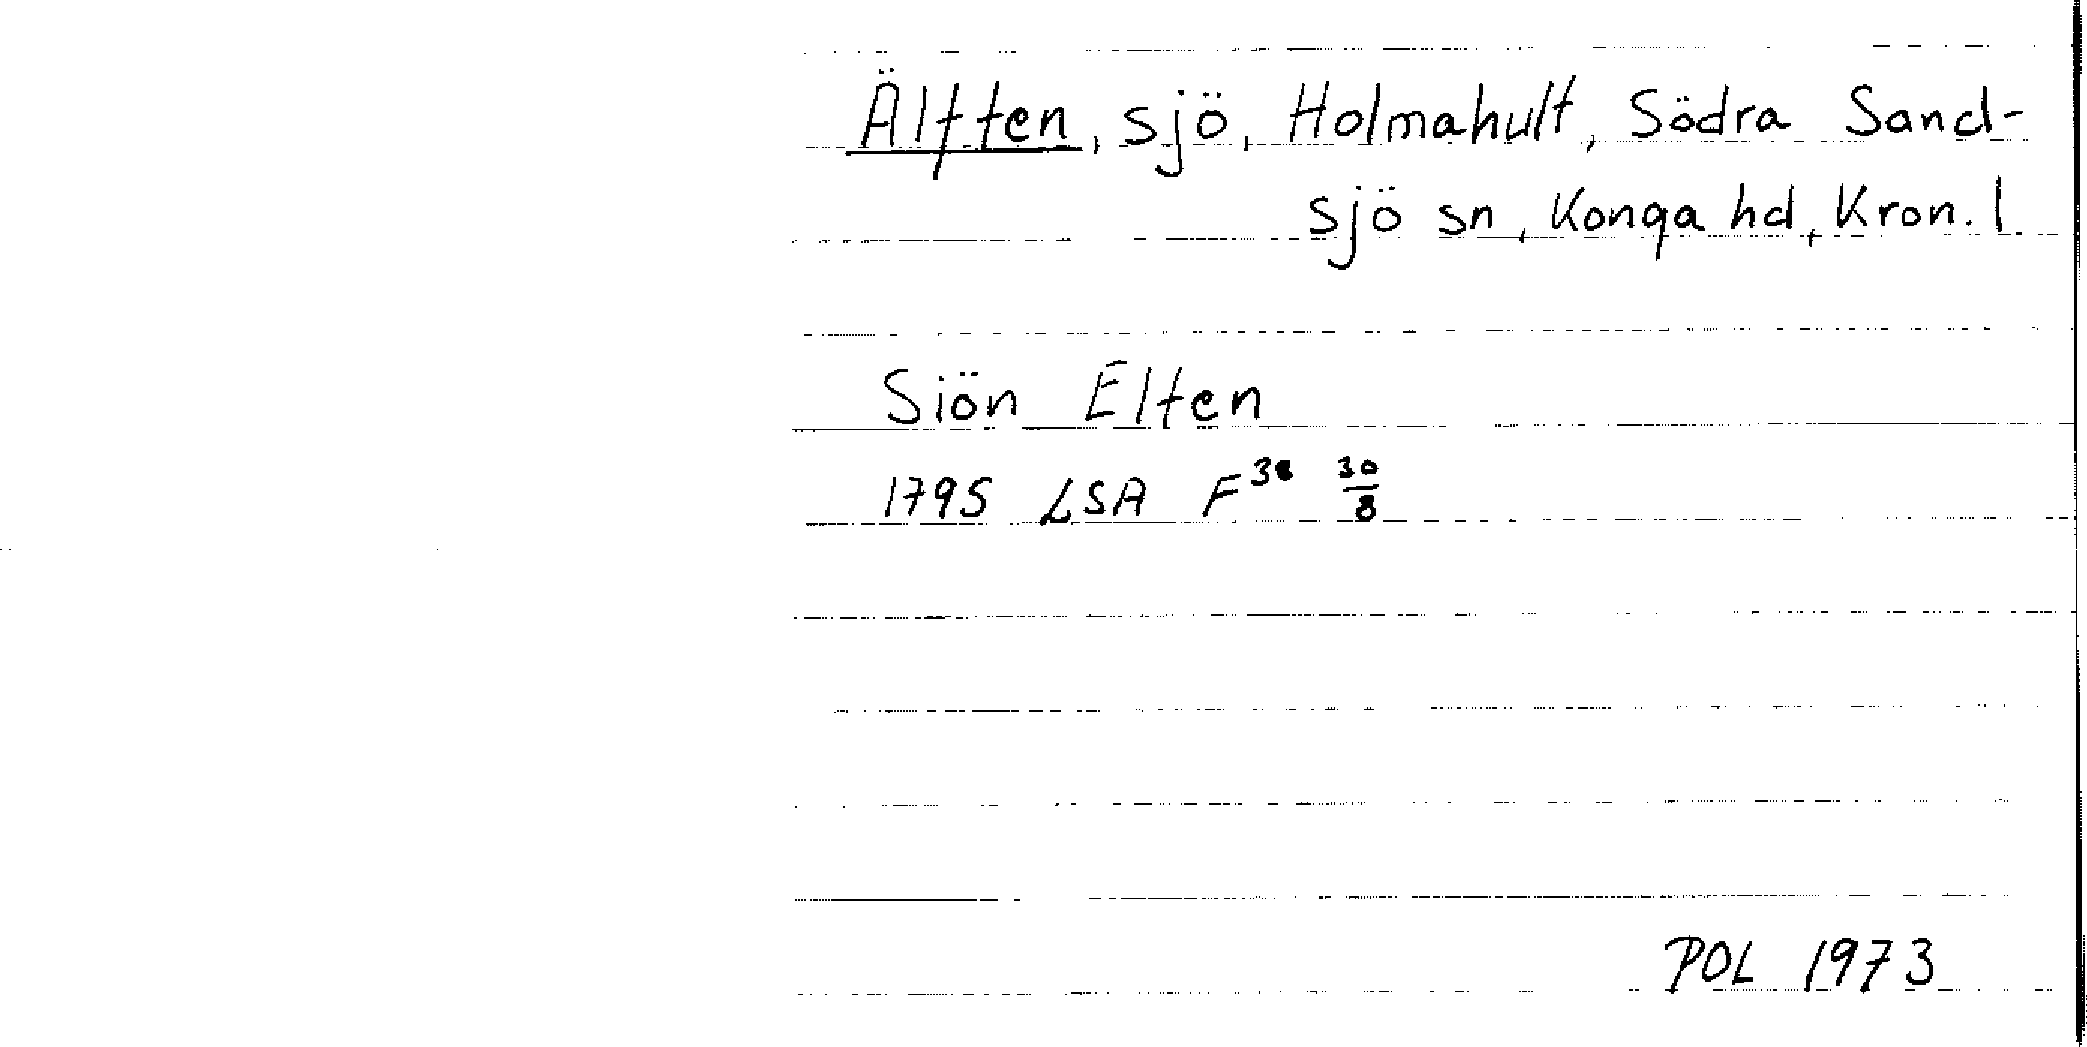 Älften, sjö, Holmahult, Södra Sand-
sjö sn, Konga hd, Kron. l
Siön Elten
1795 LSA F 30/8
POL 1973